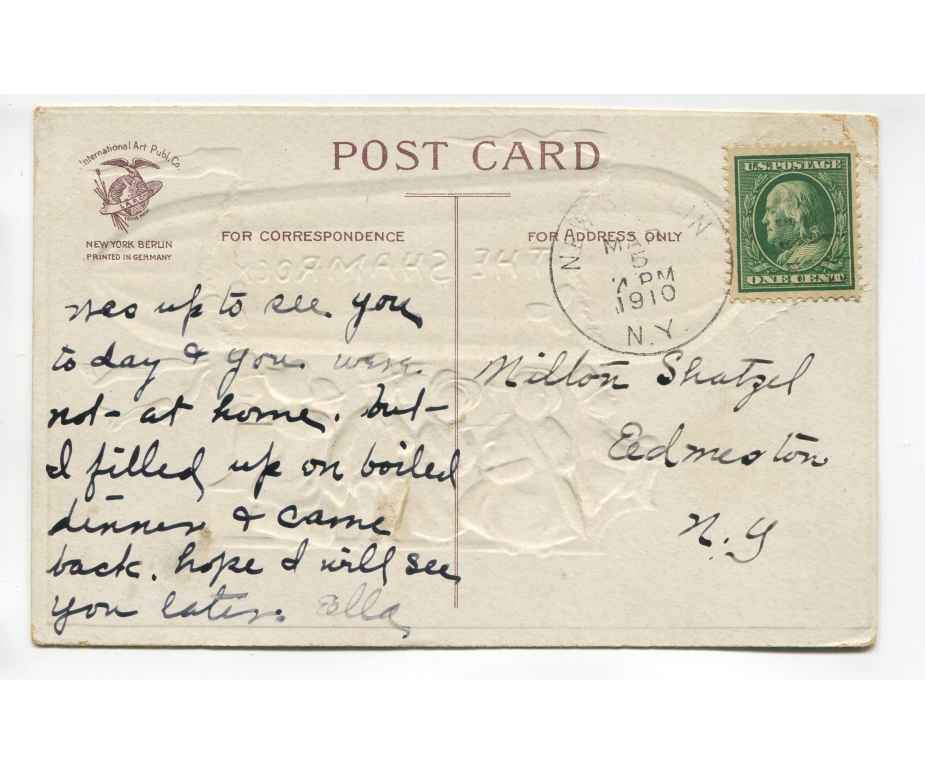 International Art Publ. Co.
NEW YORK BERLIN
PRINTED IN GERMANY
POST CARD
FOR CORRESPONDENCE
FOR ADDRESS ONLY
U.S. POSTAGE
ONE CENT
PM
1910
N.Y.
THE SHAMROCK
was up to see you
to day & you were
not at home. but
I filled up on boiled
dinner & came
back. hope I will see
you later. Ella
Milton Shatzel
Edmeston
N.Y